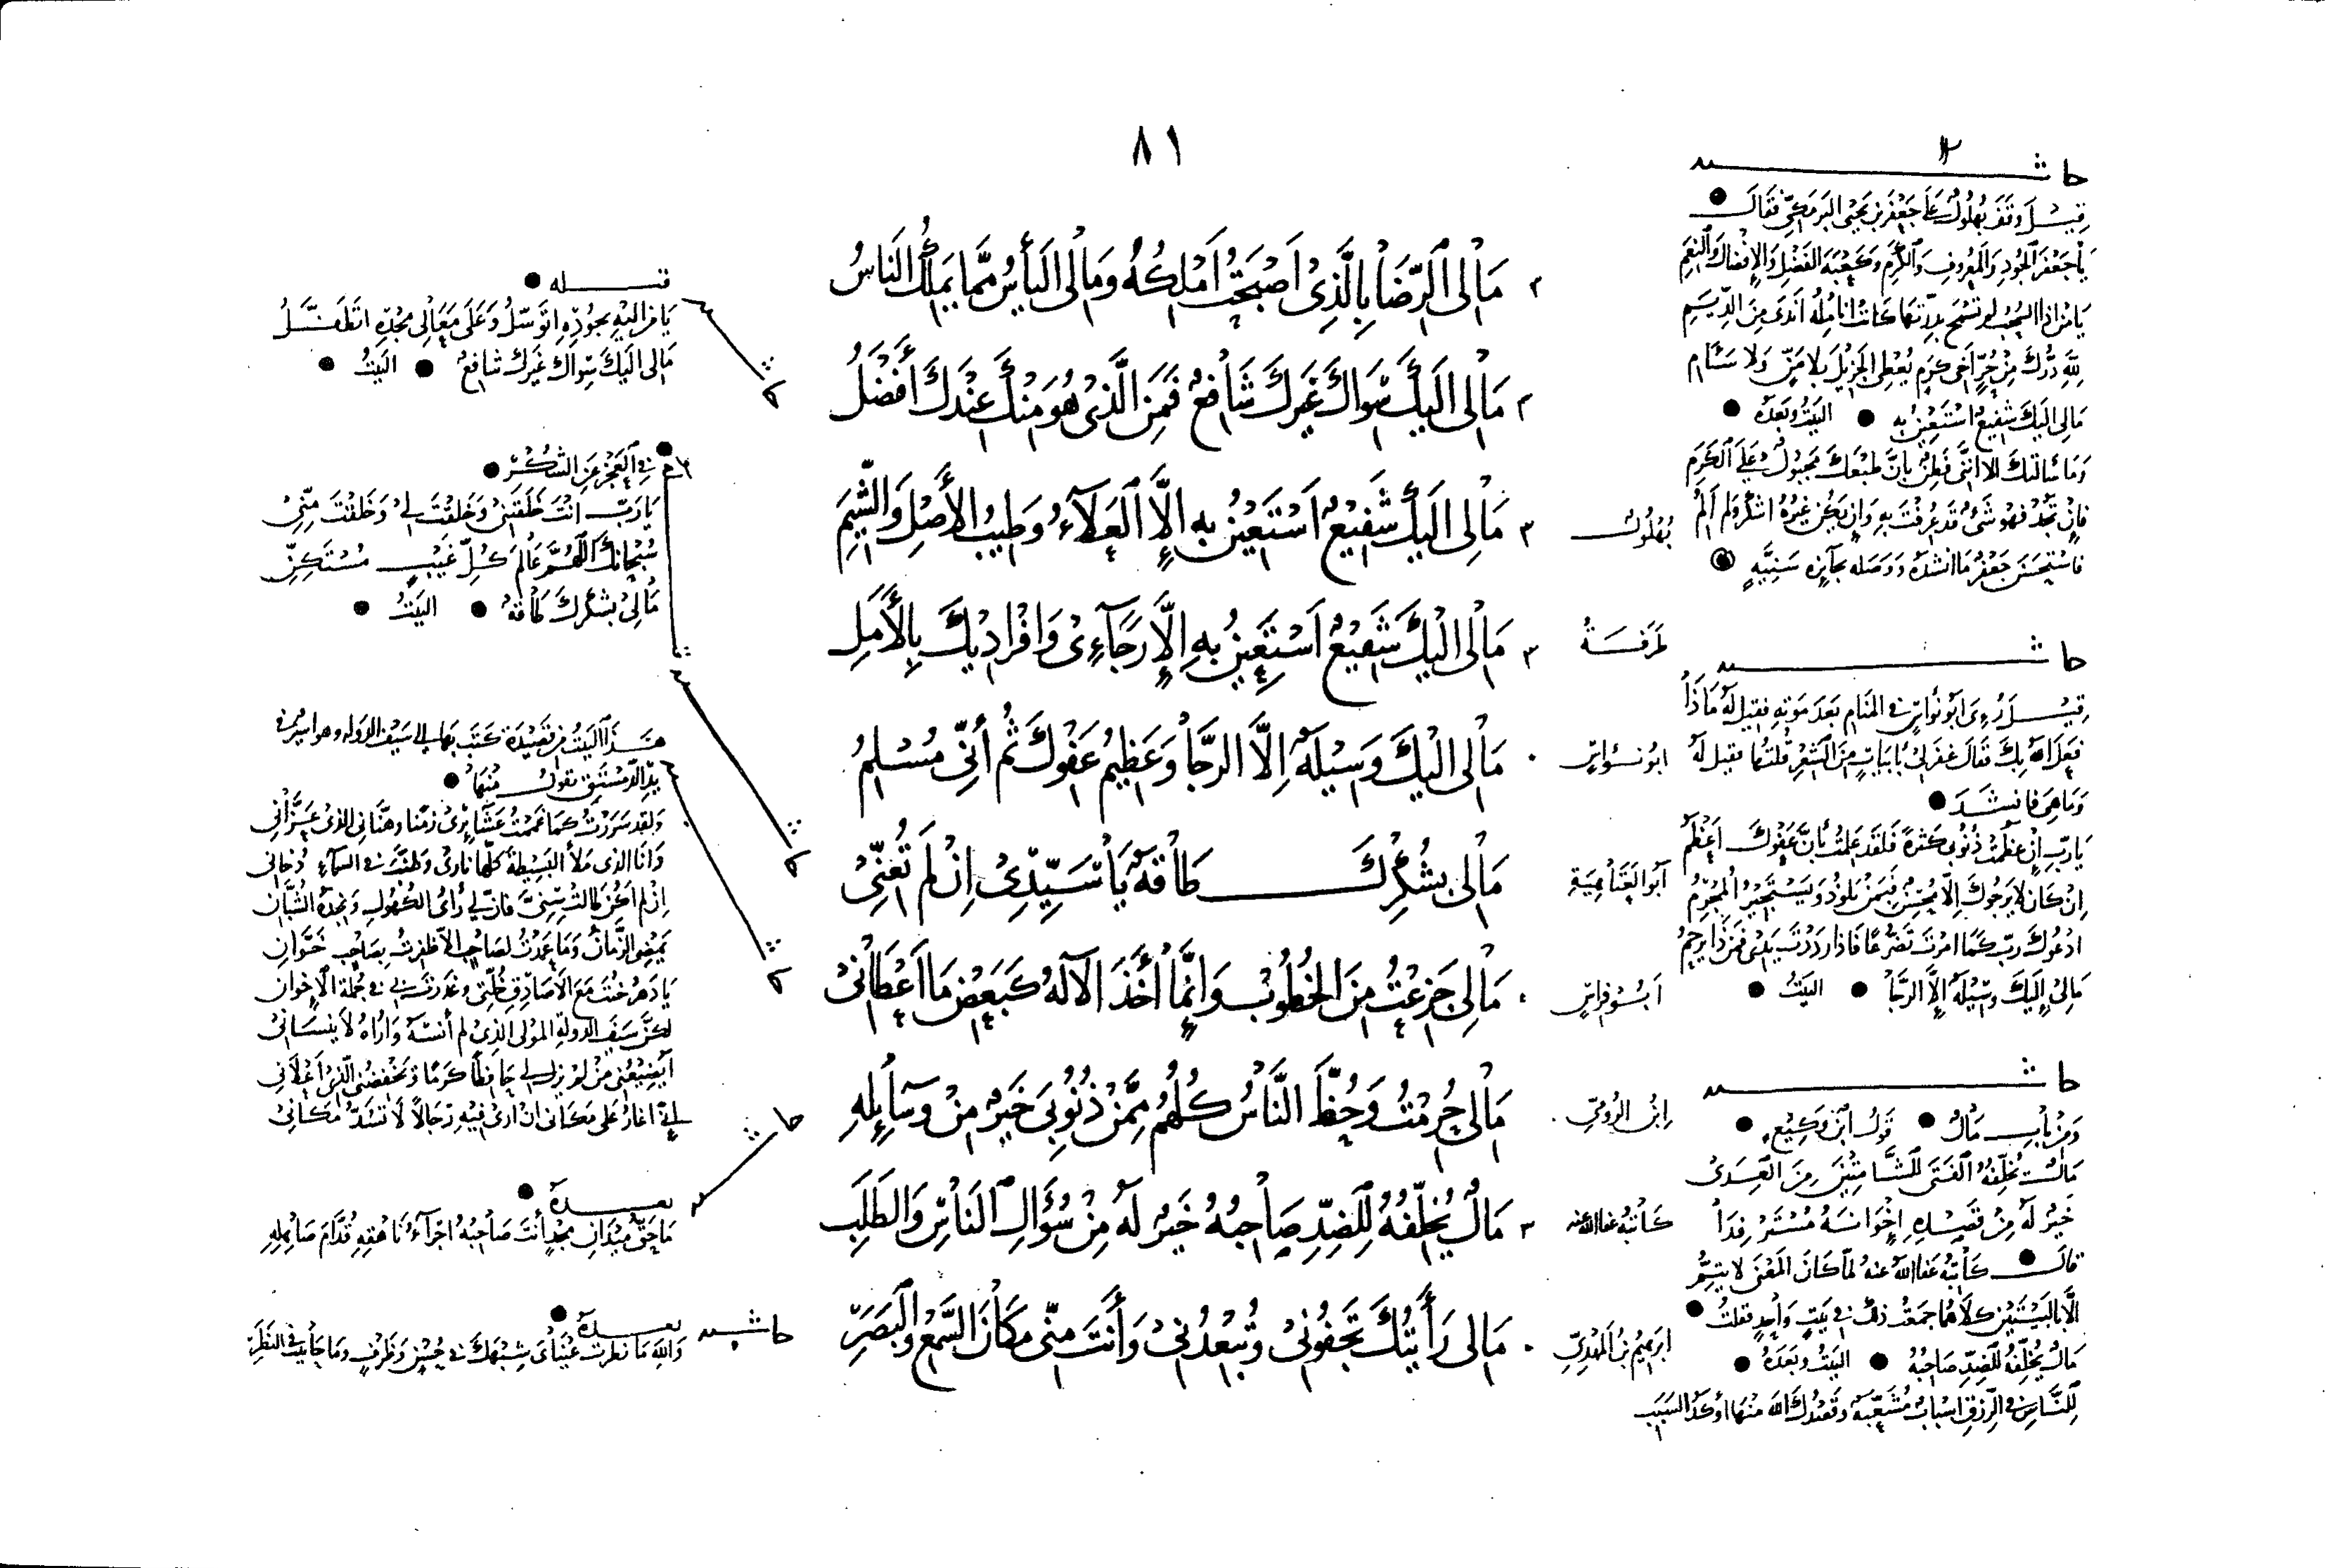 ٨١
مَالِى الرِّضَا بِالَّذِى اَصْبَحْتُ اَمْلِكُهُ وَمَالِى اليَأْسُ مِمَّا يَمْلِكُ النَاسُ
مَالِى الَيكَ سِوَاكَ غَيرَكَ شَافِعٌ فَمَنِ الَّذِى هُوَ مِنْكَ عِنْدَكَ أَفْضَلُ
بُهْلُولٌ
مَالِى الَيكَ شَفِيعٌ اَسْتَعِيْنُ بِهِ اِلَّا العَلَآءُ وَطِيبُ الأَصْلِ وَالشِّيَمِ
مَالِى الَيْكَ شَفِيْعٌ اَسْتَعِيْنُ بِهِ اِلَّا رَجَآءِى وَافْرَادِيْكَ بِالأَمَلِ
ابُو نُواسٍ
مَالِى الَيْكَ وَسِيْلَةٌ اِلَّا الرَجَا وَعَظِيمُ عَفْوِكَ ثُم أَنِّى مُسْلِمُ
ابُو العَتَاهِيَةِ
مَالِى بشُكْرِكَ طَاقَةٌ يَا سَيِّدِى اِنْ لَم تُعِنِّىْ
أَبُو فِراسٍ
مَالِى جَزِعْتُ مِنَ الخُطُوبِ وَاِنَّمَا أَخَذَ الآلهُ كَبَعْضِ مَا اَعْطَانِىْ
اِبْنُ الرُوْمِىِّ
مَالِى حُرِمْتُ وَحُظَّ النَّاسُ كُلُّهُمُ مِمَّنْ ذُنُوبِىَ خَيْرٌ مِنْ وَسَآئِلِهِ
كَاتبُهُ عفا الله عنه
مَالٌ يُخَلِّفُهُ لِلضِدِّ صَاحِبُهُ خَيْرٌ لَهُ مِنْ سُؤَالِ النَاسِ وَالطَلَبِ
ابرَهيمُ بنُ المَهْدِىِّ
مَالِى رَأَيْتُكَ تَجْفُونِىْ وَتُبْعِدُنِىْ وَأَنتَ مِنِّى مَكَانَ السَّمْعِ وَالبَصَرِ
حاشيه
قِيْلَ وَقَفَ بُهْلُولٌ عَلَى جَعْفَر بن يَحْيَى البَرمَكِىِّ فَقَالَ
يَا جَعْفَرَ الجُودِ وَالمَعْرُوفِ وَالكَرَمِ وَكَعْبَةَ الفَضْلِ وَالإِفْضَالِ وَالنِعَمِ
يَا مَنْ اذا السُحْبُ لَمْ تَسْمَحْ بدِرَّتِهَا كَانَتْ انَامِلُهُ اَنْدَى مِنَ الدِيَمِ
للهِ دَرُّكَ مِنْ حُرٍّ أَخِى كَرَمٍ يُعْطِى الجَزِيْلَ بِلا مَنٍّ وَلا سَأَمِ
مَالِى الَيكَ شَفِيعٌ اسْتَعِيْنُ بِهِ البَيتُ وَبَعْدَهُ
وَمَا سَألتكَ الا انَّنِى فَطِنٌ بِانَّ طَبْعَكَ مَجْبُولٌ عَلَى الكَرَمِ
فَاِنْ تَجُدْ فَهْوَ شَىْءٌ قَد عُرِفْتَ بِهِ وَاِنْ يَكُنْ غَيْرُهُ اشْكُر وَلَم اَلُمِ
فاسْتَحْسَنَ جَعْفَرُ مَا انْشَدَهُ وَوَصَله بجَآئِزه سَنِيَّةٍ
حاشيه
قِيْلَ رُؤِىَ ابُو نُوَاسٍ فى المَنَامِ بَعدَ مَوتِهِ فقِيلَ لَهُ مَاذَا
فَعَلَ اللهُ بِكَ فَقَالَ غَفَرَ لِى بابيَاتٍ مِنَ الشِعْرِ قُلتُهَا فقيل لَهُ
وَمَا هِىَ فَانشَدَ
يَا رَبِّ اِنْ عَظُمَتْ ذُنُوبِى كَثْرةً فَلَقَد عَلِمتُ بانَّ عَفْوَكَ اَعْظَمُ
اِنْ كَانَ لا يَرجُوكَ اِلَّا مُحْسِنٌ فَبِمَنْ يَلوذُ وَيَسْتَجِيْرُ المُجْرِمُ
ادْعُوكَ رَبِّ كَمَا امَرْتَ تَضَرُّعًا فَاذَا رَدَدْتَ يَدِى فَمَنْ ذَا يَرحَمُ
مَالِىْ اِلَيكَ وَسِيْلَهٌ اِلَّا الرَجَا البَيْتُ
حاشيه
وَمِنْ بَابِ مَال قَولُ ابْنِ وَكِيْعٍ
مَالٌ يُخَلِّفُهُ الفَتَى لِلشَّامِتِيْنَ مِنَ العِدَى
خَيْرٌ لَهُ مِنْ قَصْدِهِ اِخْوَانَهُ مُسْتَرْفِدَا
قالَ كَاتبُهُ عَفَا اللهُ عنهُ لمّا كَانَ المَعْنَى لا يَتِمُّ
الَّا بالبَيْتَيْنِ كِلَاهُمَا جَمَعْتُ ذلكَ فِى بَيْتٍ وَاحِدٍ فَقلتُ
مَالٌ يُخَلِّفُهُ لِلضِّدِّ صَاحِبُهُ البَيْتُ وَبَعدَهُ
لِلنَّاسِ فى الرِزقِ اسْبَابٌ مُشَعَّبَةٌ وَقَصْدُكَ اللهَ مِنهَا أَوْكَدُ السَبَبِ
قبله
يَا مَنْ اليْهِ بجُودِهِ اتَوَسَّلُ وَعَلَى مَعَالِى مَجْدِهِ اتَطَفَّلُ
مَالِى الَيكَ سِوَاكَ غَيْرَكَ شافِعٌ البَيْتُ
فى العَجْزِ عَنِ الشُكْرِ
يَا رَبِّ انْتَ خَلَقتَنِى وَخَلَقْتَ لِى وَخَلَقْتَ مِنِّىْ
سُبْحَانَكَ اللَّهُمَّ عَالِمَ كُلِّ غَيْبٍ مُسْتَكِنِّ
مَالِى بشُكْرِكَ طَاقَةٌ البَيْتُ
هَذَا البَيْتُ مِنْ قَصِيْدَةٍ كَتَبَ بهَا الى سَيْفِ الدَولَهِ وهوَ اَسِيْرٌ فى
يَدِ الدُّمُسْتُقِ يقولُ مِنهَا
وَلقَد سَرَرْتُ كمَا غَمَمْتُ عَشَائِرِى زمَنًا وهَنَّانِى الذِى عَزَّانِى
وَانَا الذى مَلأ البَسِيْطَةَ كُلَّهَا نَارِى وَطَنَّبَ فى السَمَآءِ دُخَانِى
اِنْ لم اَكُنْ طَالَتْ سِنِىَّ فَانَّ لِى رَأىَ الكُهُولِ وَنَجْدَةَ الشُبَّانِ
يَمْضِى الزَّمَانُ وَمَا عَمَدْتُ لصَاحِبٍ الَّا ظفِرتُ بِصَاحِبٍ خَوَّانِ
يَا دَهرُ خُنْتَ مَعَ الأصَادِقِ خُلَّتِى وغَدَرْتَ بِى فى جُملَة الإخوَانِ
لكنَّ سَيْفَ الدولةِ المَولَى الذِىْ لم أَنسَهُ وَارَاهُ لا يَنسَانِىْ
ايُضِيْعُنِى مَنْ لم يَزل لى حَافِظًا كَرَمًا وَيَخْفِضُنِى الّذِى اَعْلَانِى
اِنِّى اغَارُ عَلى مَكَانِى انْ ارَى فيْهِ رِجَالًا لَا تَسُدُّ مَكَانِىْ
بعدهُ
مَا حَقُّ مَيْدَانِ مَجْدٍ أَنتَ صَاحِبُهُ اجْرَآءُ نَاهِقِهِ قُدَّامَ صَاهِلِهِ
حاشيه
بعدهُ
وَاللهِ مَا نظَرتْ عَيْنَاىَ شِبْهَكَ فى حُسْنٍ وَظَرْفٍ